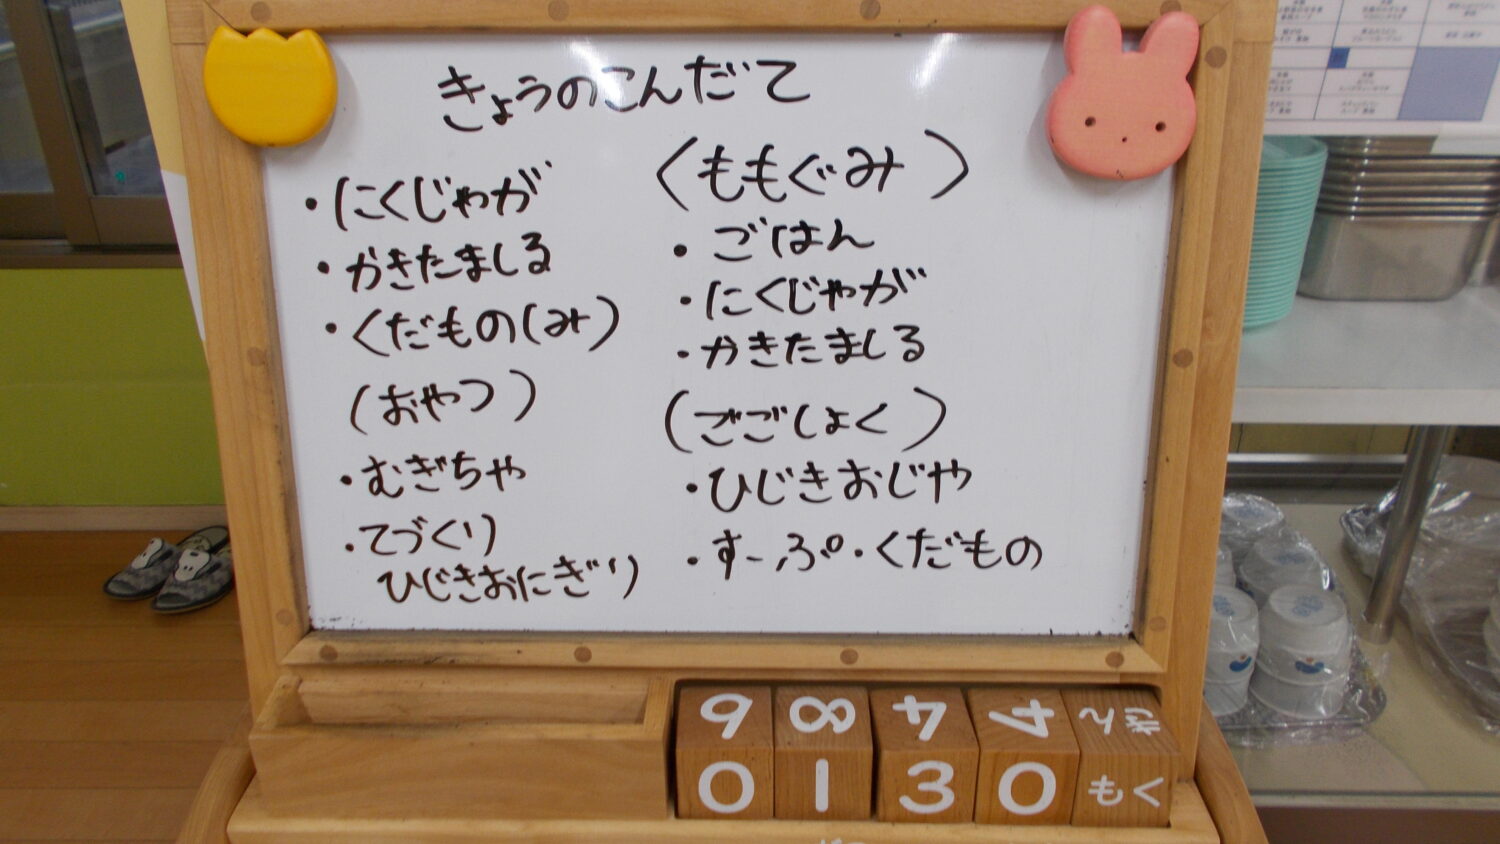 きょうのこんだて
・にくじゃが
・かきたましる
・くだもの(み);
(おやつ)
・むぎちゃ
・てづくり
ひじきおにぎり
〈ももぐみ〉
・ごはん
・にくじゃが
・かきたましる
(ごごしょく)
・ひじきおじや
・すーぷ・くだもの
9 8 4 4 きん
0 1 3 0 もく